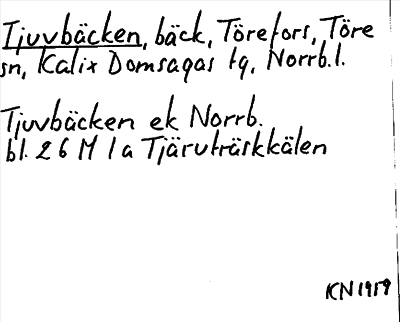 Tjuvbäcken, bäck, Törefors, Töre
sn, Kalix Domsagas tg, Norrb.l.
Tjuvbäcken ek Norrb.
bl. 26 M 1a Tjäruträskkälen
KN 1959